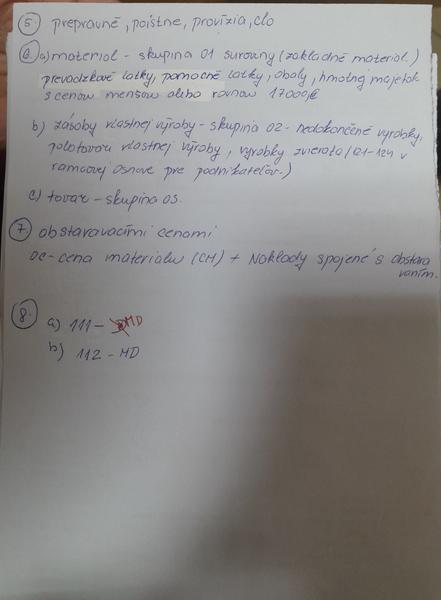 5. prepravné, poistné, provízia, clo
6. a) materiál - skupina 01 suroviny (základné material.)
prevádzkové latky, pomocné latky, obaly, hmotný majetok
s cenou menšou alebo rovnou 1700€
b) zásoby vlastnej výroby - skupina 02 - nedokončené výrobky,
polotovary vlastnej výroby, výrobky zvierata (121-124 v
rámcovej osnove pre podnikateľov.)
c) tovar - skupina 03.
7 obstarávacími cenami
OC - cena materialu (CM) + Náklady spojené s obstara
vaním.
8. a) 111 - MD
b) 112 - MD